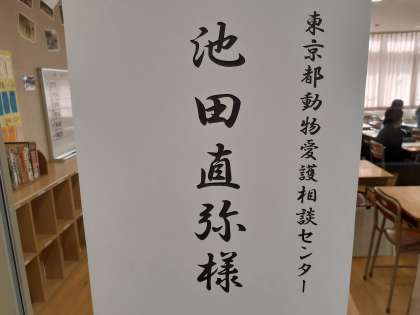 東京都動物愛護相談センター
池田直弥様